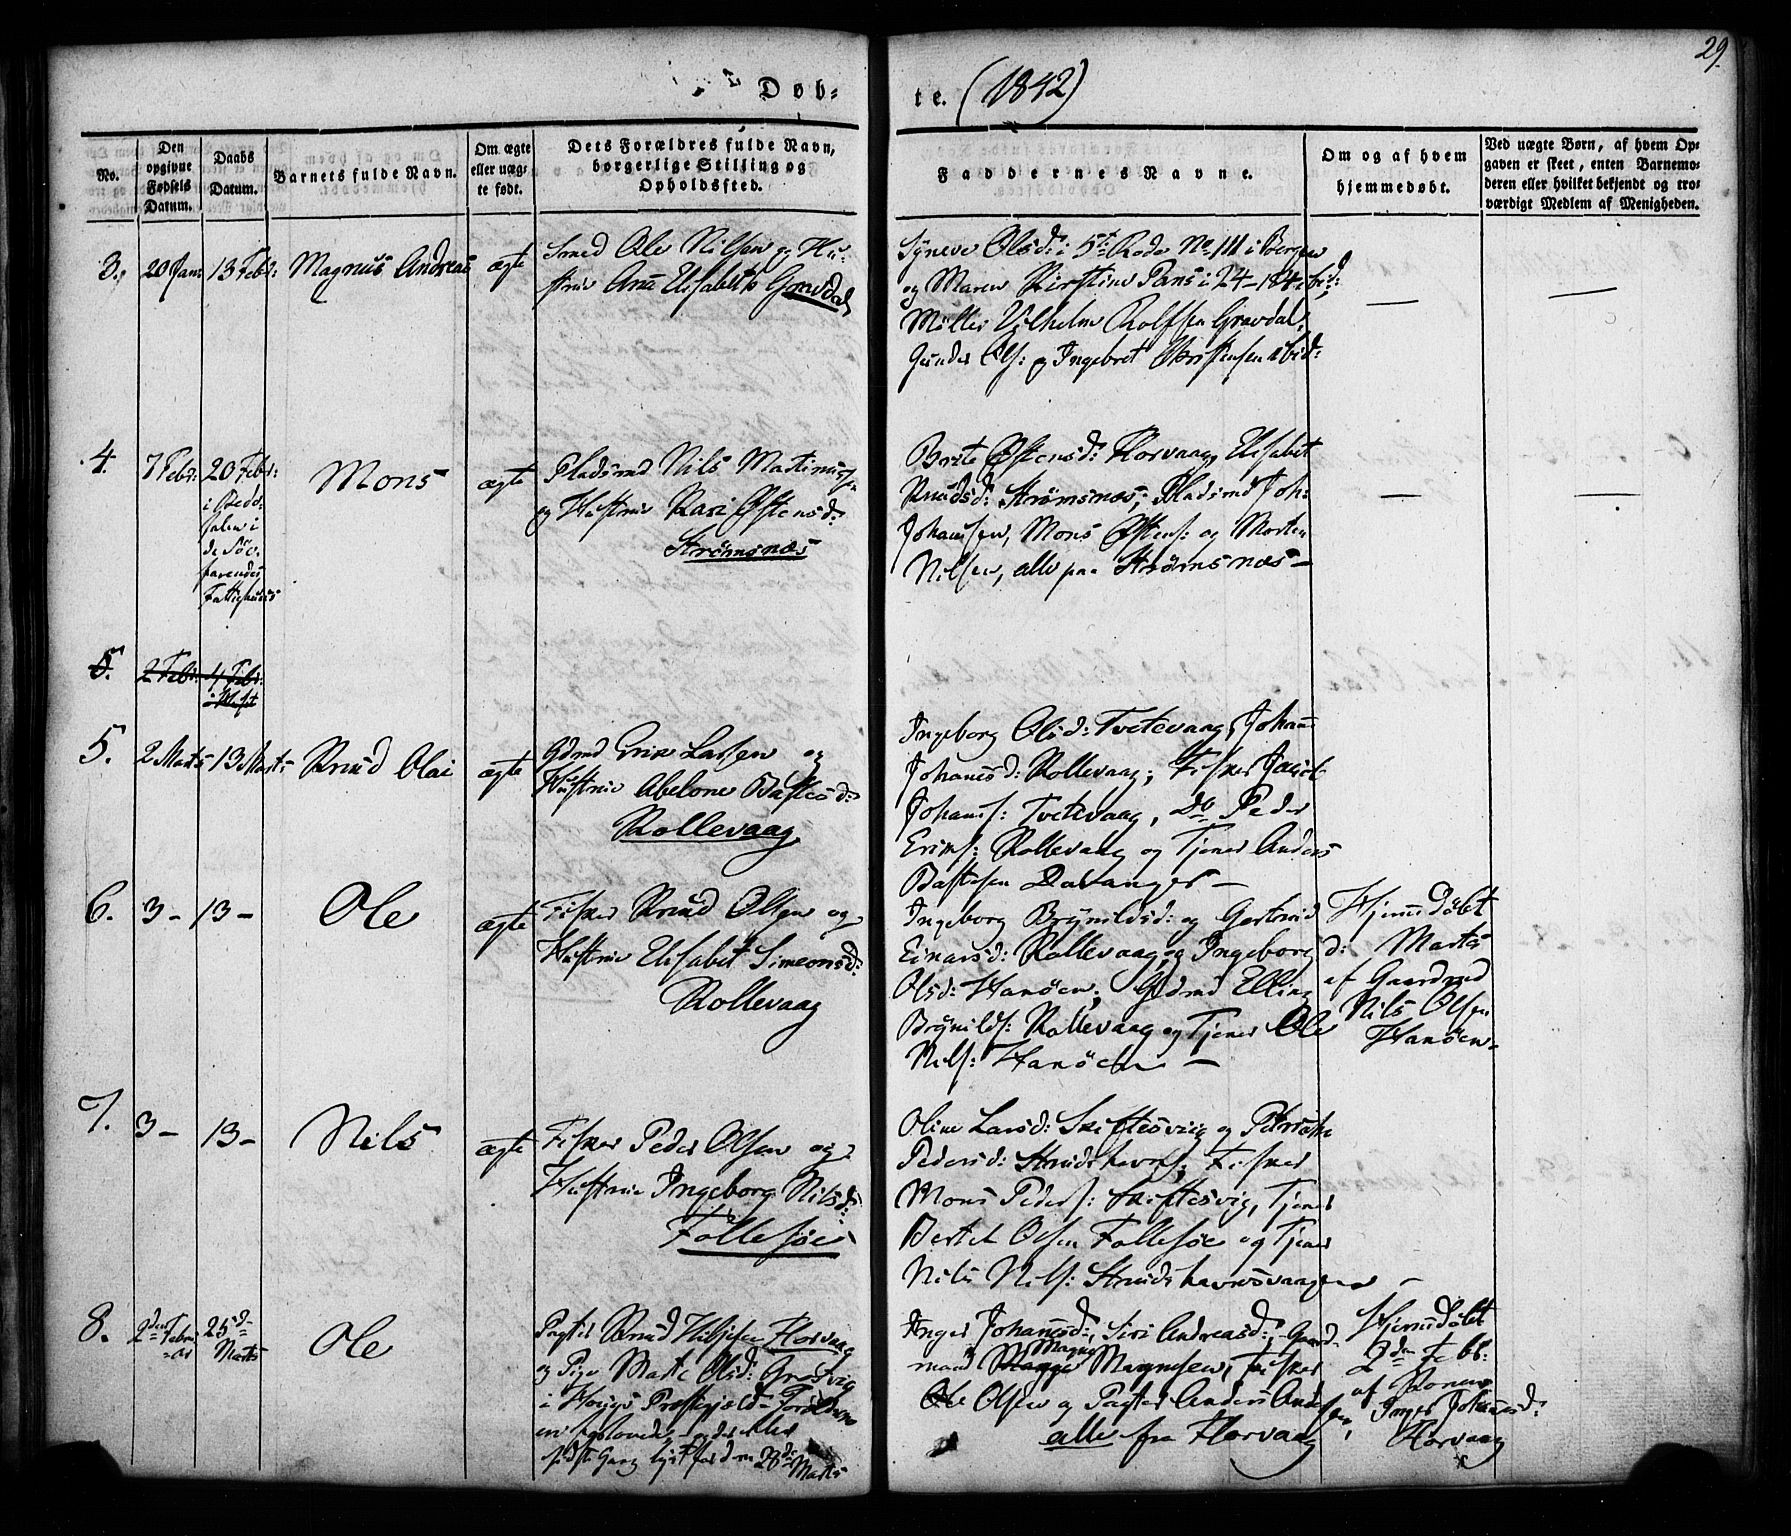 29.
Døb-
te. (1842)
No.
Den
opgivne
Fødsels
Datum.
Daabs
Datum.
Barnets fulde Navn.
Om ægte
eller uæg-
te født.
Dets Forældres fulde Navn,
borgerlige Stilling og
Opholdssted.
Faddernes Navne.
Om og af hvem
hjemmedøbt.
Ved uægte Børn, af hvem Op-
gaven er skeet, enten Barnemo-
deren eller hvilket bekjendt og tro-
værdigt Medlem af Menigheden.
3.
20 Jan:
13 Febr:
Magnus Andreas
ægte
Smed Ole Nilsen og Hu-
strue Ane Elisabeth Gravdal
Syneve Olsd: i 5te Rode No 111 i Bergen
og Maren Kirstine Pans i 24-184 ibid:
Møller Vilhelm Rolfsen Gravdal,
Gunder Ols: og Ingebret Christensen ibid:
4
7 Febr:
20 Febr:
i Bede-
salen i
de Søe-
farendes
Fattighuus
Mons
ægte
Pladsmd Nils Martinussen
og Hustrue Kari Østensd:
Strømsnæs
Brite Østensd: Florvaag, Elisabet
Knudsd: Strømsnæs; Pladsmd Joh:
Johannesen, Mons Østens: og Morten
Nilsen, alle paa Strømsnæs -
5.
2 Febr:
4 Febr:
5.
2 Marts
13 Marts
Knud Olai
ægte
Gdmd Erik Larsen og
Hustrue Abelone Bastesd:
Rollevaag
Ingeborg Olsd: Tvetevaag, Johanne
Johannesd: Rollevaag; Fisker Jacob
Johannes: Tvetevaag, Do Peder
Eriks: Rollevaag og Tjener Anders
Bastesen Davanger -
6.
3 -
13 -
Ole
ægte
Fisker Knud Olsen og
Hustrue Elisabet Simeonsd:
Rollevaag
Ingeborg Brynildsd: og Gertrud
Einarsd: Rollevaag og Ingeborg
Olsd: Hanøen; Gdmd Elling
Brynilds: Rollevaag og Tjener Ole
Nils: Hanøen -
Hjemedøbt
d: Marts
af Gaardmd
Nils Olsen
Hanøen -
7.
3 -
13 -
Nils
ægte
Fisker Peder Olsen og
Hustrue Ingeborg Nilsd:
Follesøe
Oline Larsd: Skiftesvig og
Pedersd: Strudshavn; Fisker
Mons Peders: Skiftesvig, Tjener
Bertel Olsen Follesøe og Tjener
Nils Nils: Strudshavnsvaagen -
8.
2den Febru-
ar
25de
Marts
Ole
Pagter Knud Florvaag
og Pige Marte Olsd:
i Præstegjæld - Forældrene
ere forlovede og
sidste Gang lyst for dem 28de Marts
Inger Johannesd:, Siri Andreasd:, Gaard-
mand Magne Magnusen, Fisker
Ole Olsen og Pagter Anders Andersen,
alle fra Florvaag
Hjemedøbt
2den Febr:
af Konen
Inger Johannesd:
Florvaag